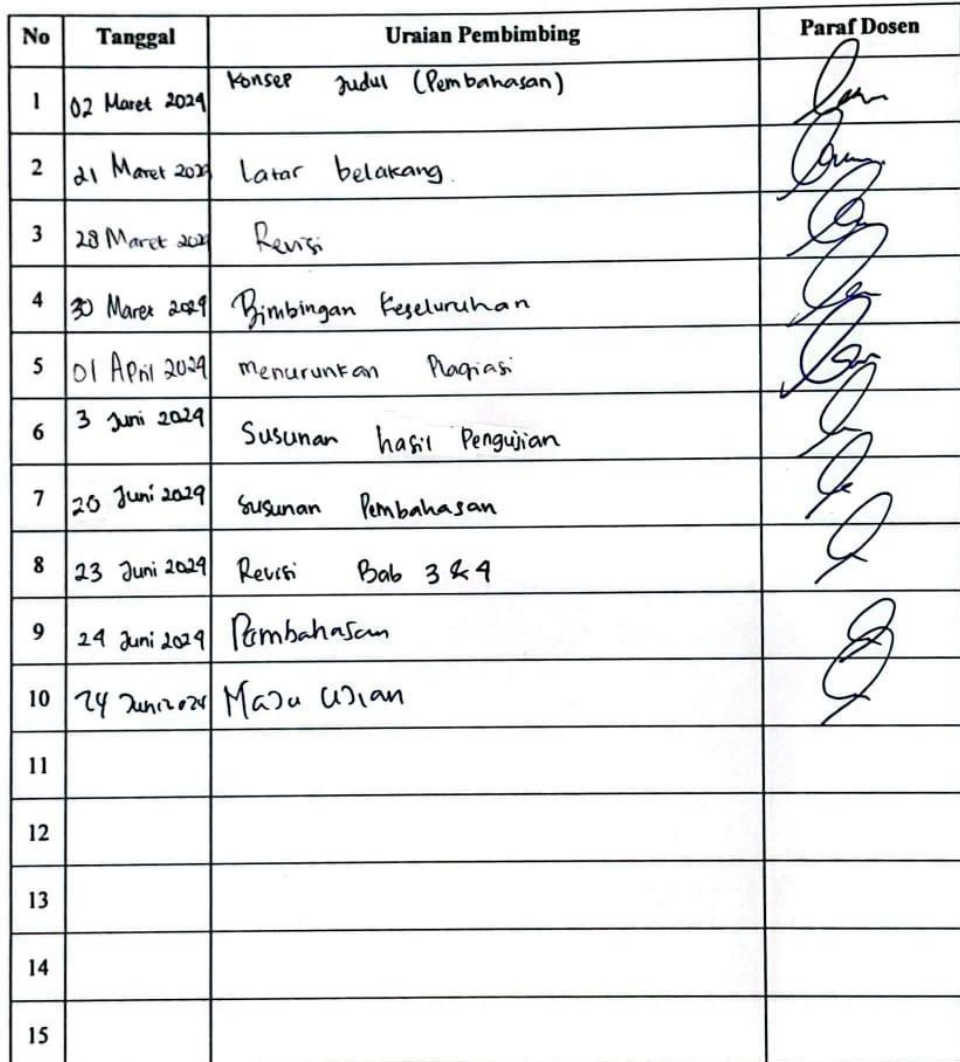 No Tanggal Uraian Pembimbing Paraf Dosen
1 02 Maret 2024 Konsep Judul (Pembahasan)
2 21 Maret 2024 Latar belakang.
3 28 Maret 2024 Revisi
4 30 Maret 2024 Bimbingan Keseluruhan
5 01 April 2024 menurunkan Plagiasi
6 3 Juni 2024 Susunan hasil Pengujian
7 20 Juni 2024 Susunan Pembahasan
8 23 Juni 2024 Revisi Bab 3 & 4
9 24 Juni 2024 Pembahasan
10 24 Juni 2024 Maju Ujian
11
12
13
14
15